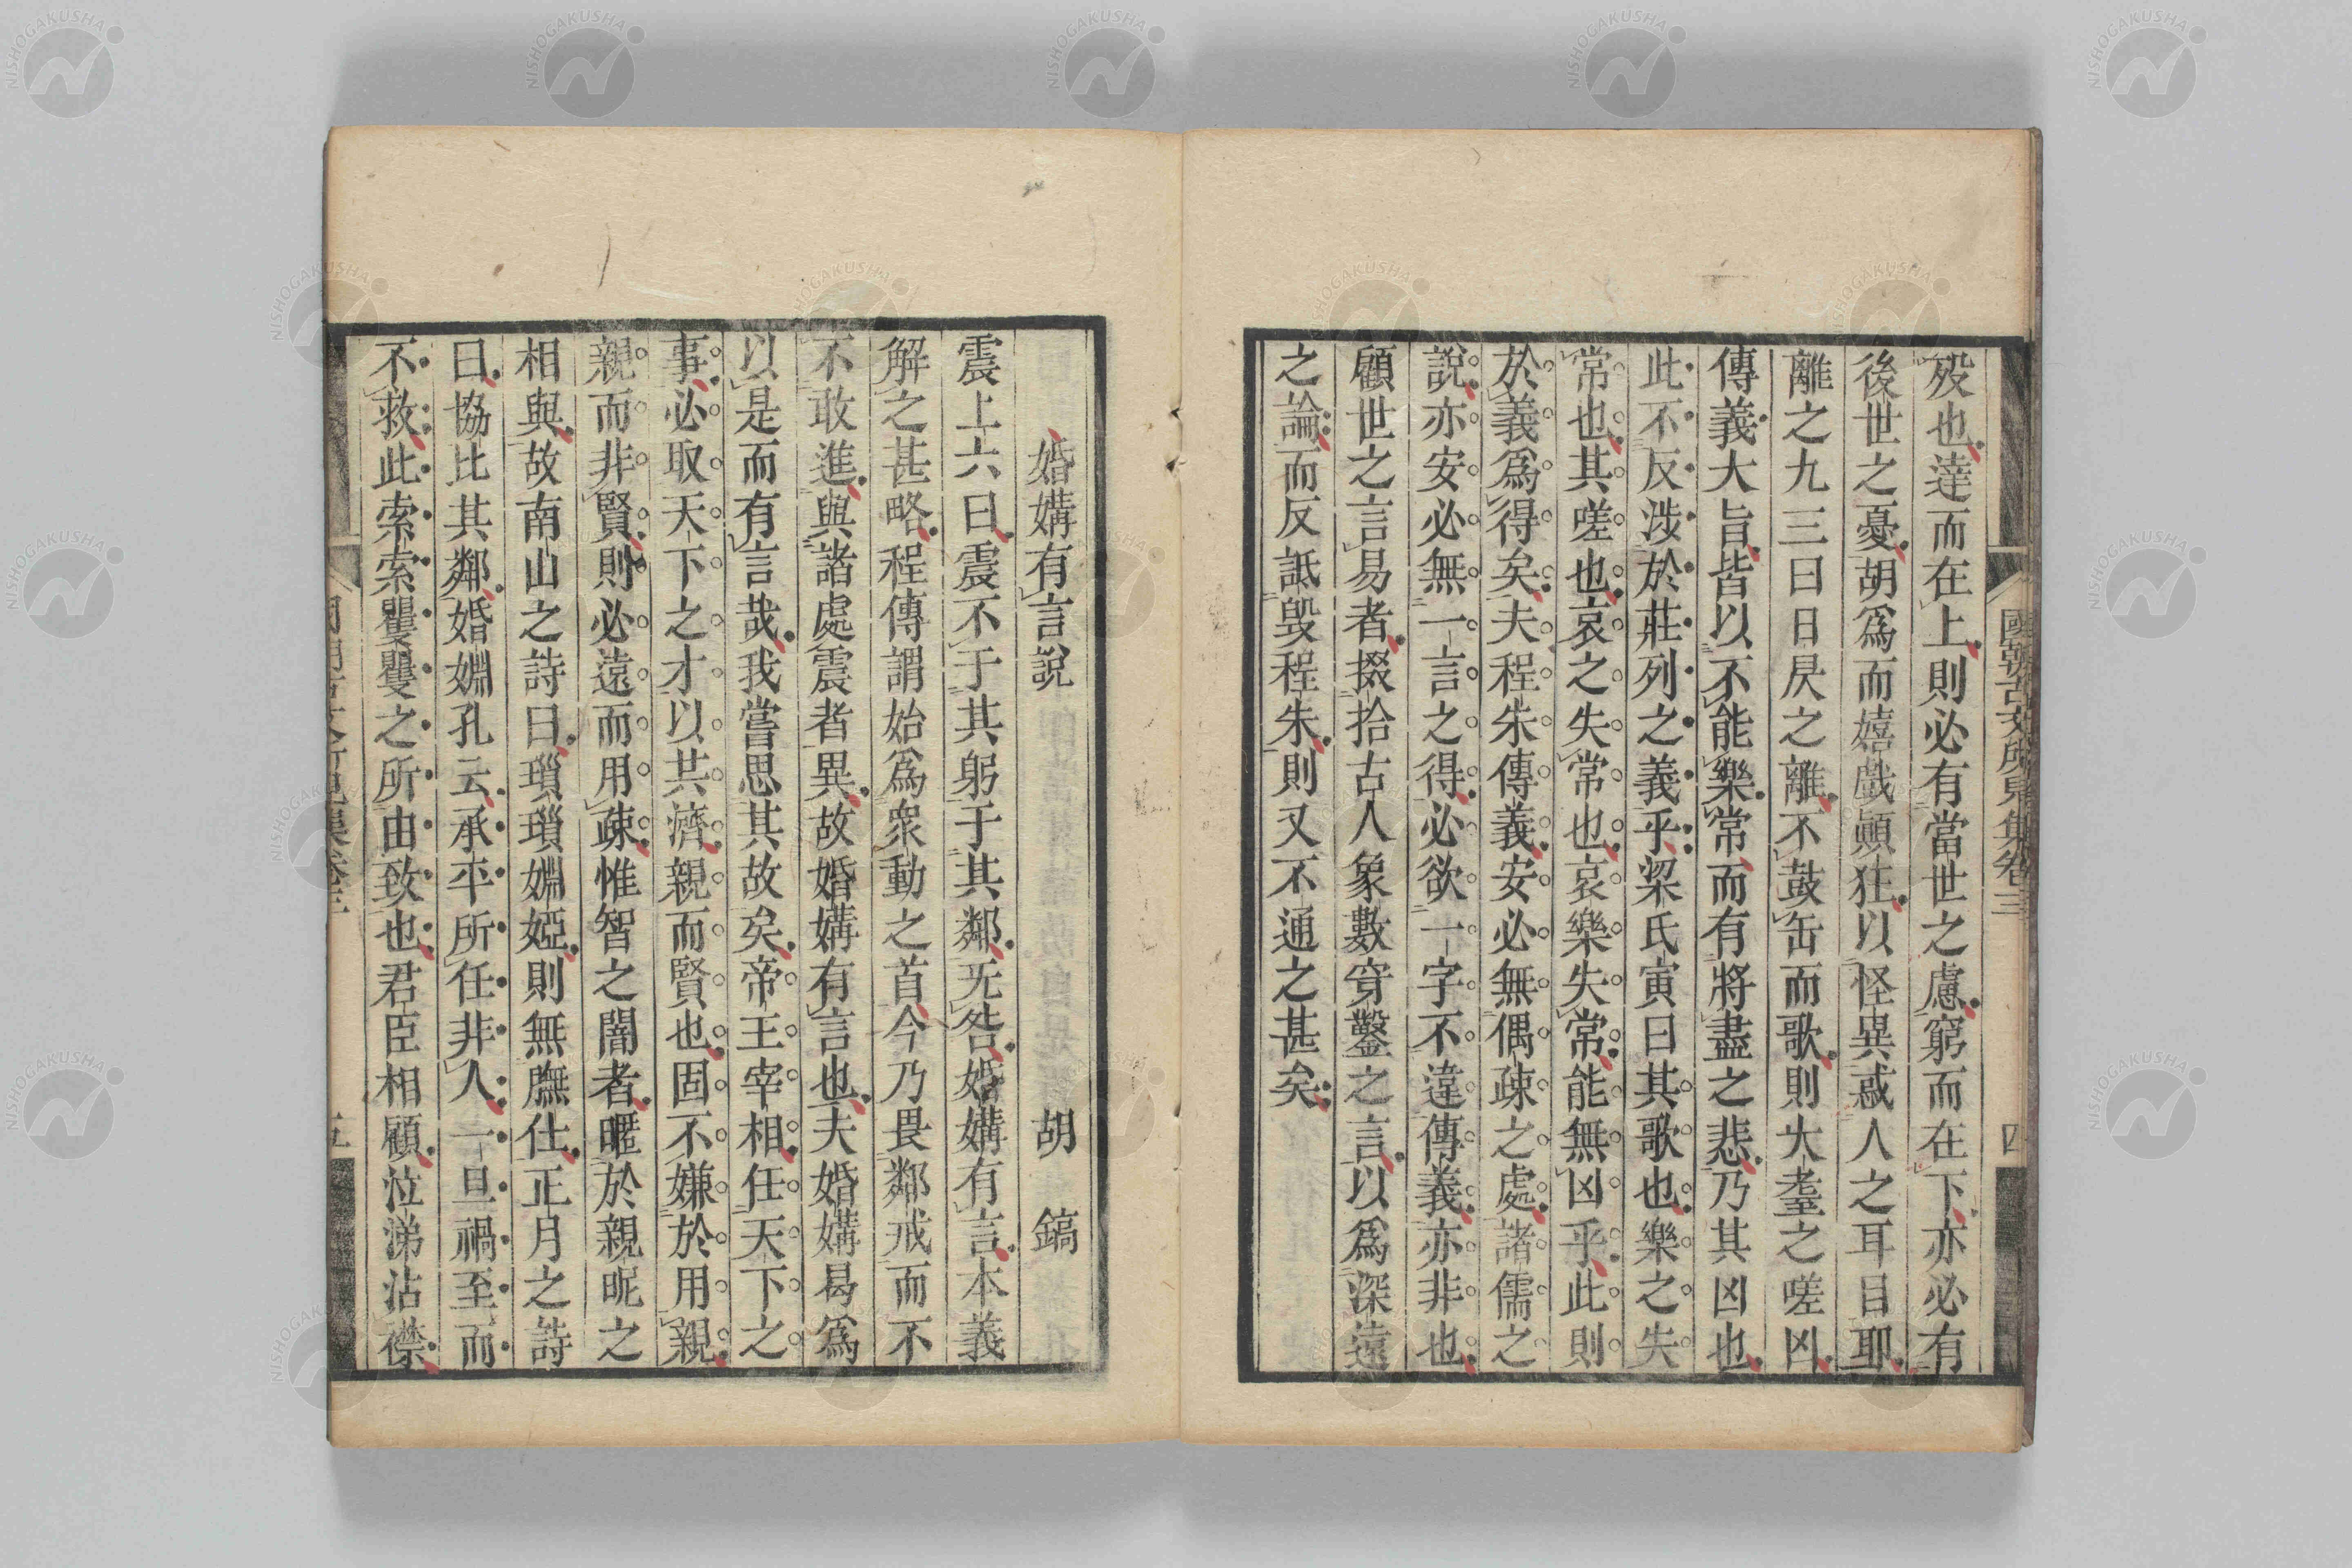 國朝古文所見集卷三
四
歿也達而在上則必有當世之慮窮而在下亦必有
後世之憂胡爲而嬉戲顚狂以怪異惑人之耳目耶
離之九三曰日昃之離不鼓缶而歌則大耋之嗟凶
傳義大旨皆以不能樂常而有將盡之悲乃其凶也
此不反涉於莊列之義乎梁氏寅曰其歌也樂之失
常也其嗟也哀之失常也哀樂失常能無凶乎此則
於義爲得矣夫程朱傳義安必無偶疎之處諸儒之
說亦安必無一言之得必欲一字不違傳義亦非也
顧世之言易者掇拾古人象數穿鑿之言以爲深遠
之論而反詆毁程朱則又不通之甚矣
婚媾有言說
胡鎬
震上六曰震不于其躬于其鄰无咎婚媾有言本義
解之甚略程傳謂始爲衆動之首今乃畏鄰戒而不
不敢進與諸處震者異故婚媾有言也夫婚媾曷爲
以是而有言哉我嘗思其故矣帝王宰相任天下之
事必取天下之才以共濟親而賢也固不嫌於用親
親而非賢則必遠而用疎惟智之闇者暱於親昵之
相與故南山之詩曰瑣瑣姻婭則無膴仕正月之詩
曰協比其鄰婚姻孔云承平所任非人一旦禍至而
不救此索索矍矍之所由致也君臣相顧泣涕沾襟
五